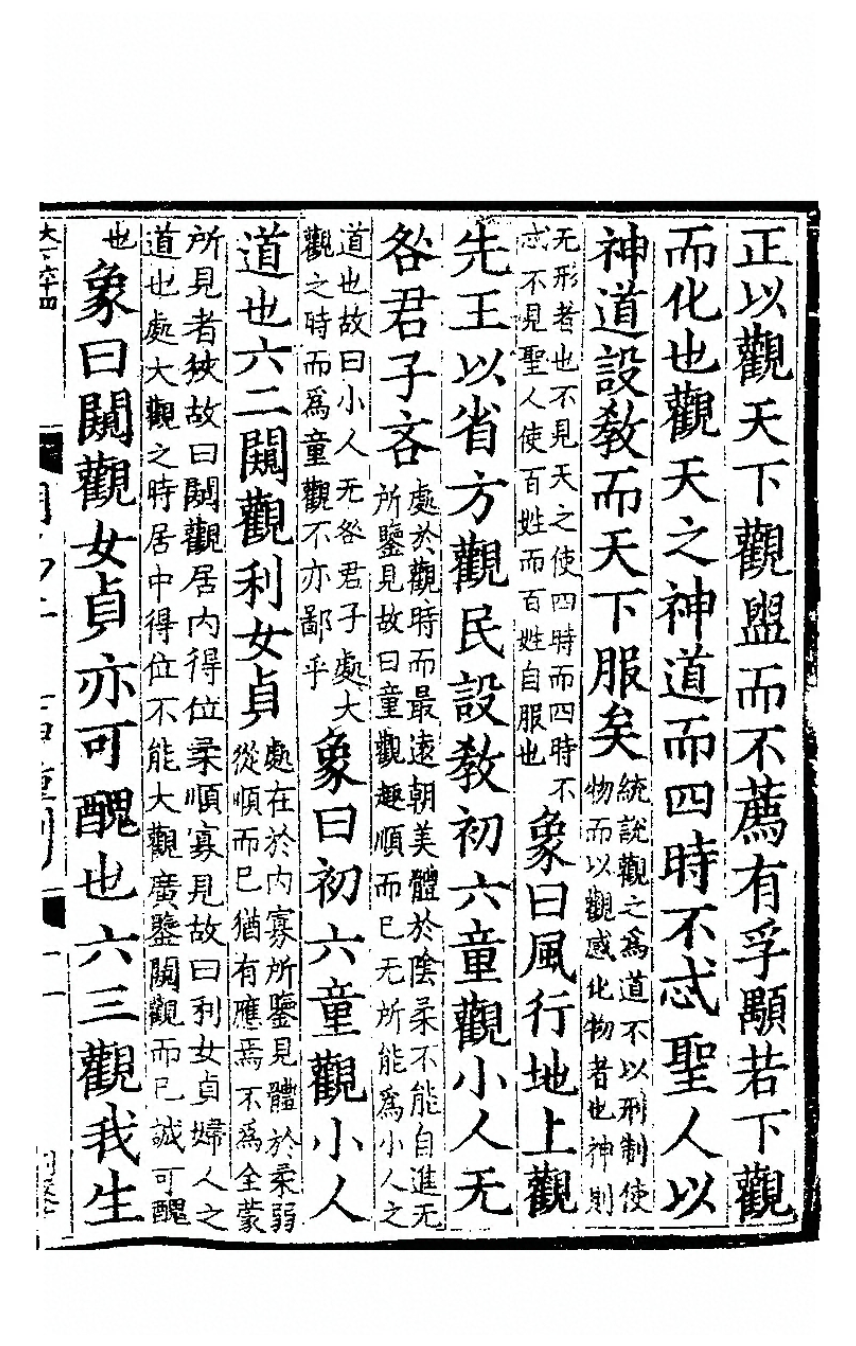 正以觀天下觀盥而不薦有孚顒若下觀
而化也觀天之神道而四時不忒聖人以
神道設敎而天下服矣
統說觀之爲道不以刑制使
物而以觀感化物者也神則
无形者也不見天之使四時而四時不
忒不見聖人使百姓而百姓自服也
象曰風行地上觀
先王以省方觀民設敎初六童觀小人无
咎君子吝
處於觀時而最遠朝美體於陰柔不能自進无
所鑒見故曰童觀趣順而已无所能爲小人之
道也故曰小人无咎君子處大
觀之時而爲童觀不亦鄙乎
象曰初六童觀小人
道也六二闚觀利女貞
處在於內寡所鑒見體於柔弱
從順而已猶有應焉不爲全蒙
所見者狹故曰闚觀居內得位柔順寡見故曰利女貞婦人之
道也處大觀之時居中得位不能大觀廣鑒闚觀而已誠可醜
也
象曰闚觀女貞亦可醜也六三觀我生